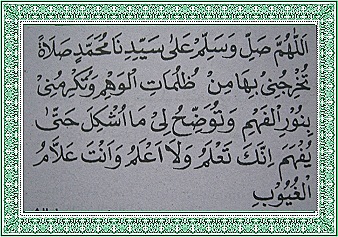 اَللّٰهُمَّ صَلِّ وَسَلِّمْ عَلٰى سَيِّدِنَا مُحَمَّدٍ صَلَاةً
تُخْرِجُنِيْ بِهَا مِنْ ظُلُمَاتِ الْوَهْمِ وَتُكْرِمُنِيْ
بِنُوْرِ الْفَهْمِ وَتُوَضِّحُ لِيْ مَا اُشْكِلَ حَتّٰى
يُفْهَمَ اِنَّكَ تَعْلَمُ وَلَا اَعْلَمُ وَاَنْتَ عَلَّامُ
الْغُيُوْبِ